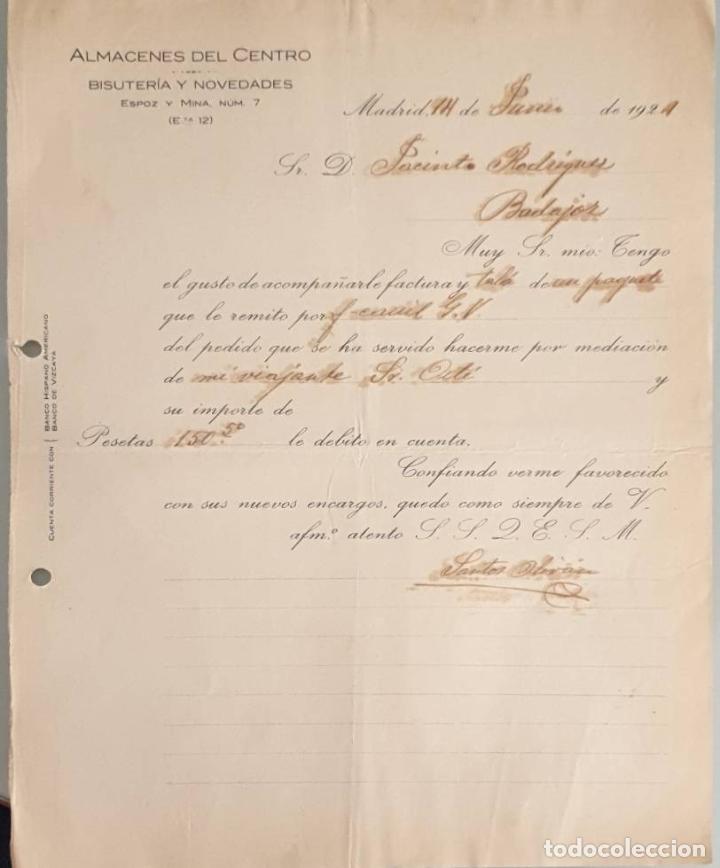 ALMACENES DEL CENTRO
BISUTERÍA Y NOVEDADES
ESPOZ Y MINA, NÚM. 7
(E.TA 12)
Madrid, 14 de Junio de 192
Sr. D. Jacinto Rodríguez
Badajoz
Muy Sr. mío: Tengo
el gusto de acompañarle factura y de un paquete
que le remito por f-carril G.V.
del pedido que se ha servido hacerme por mediación
de mi viajante Sr. y
su importe de
Pesetas 150.50 le debito en cuenta.
Confiando verme favorecido
con sus nuevos encargos, quedo como siempre de V.
afm.º atento S. S. Q. E. S. M.
Santos
CUENTA CORRIENTE CON
BANCO HISPANO AMERICANO
BANCO DE VIZCAYA
todocoleccion